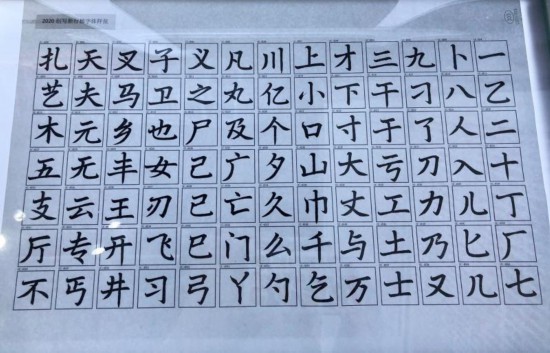 2020
一乙二十丁厂七
卜八人入儿匕几
九刁了刀力乃又
三干于亏工土士
才下寸大丈与万
上小口山巾千乞
川亿个夕久么勺
凡丸及广亡门丫
义之尸己已巳弓
子卫也女刃飞习
叉马乡丰王开井
天夫元无云专丐
扎艺木五支厅不